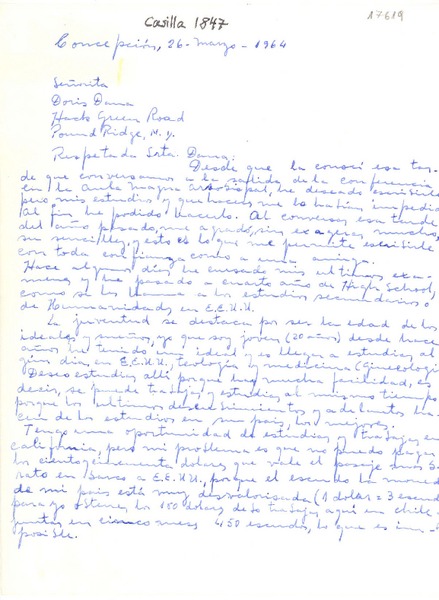 Casilla 1847
17619
Concepción, 26-Marzo-1964
Señorita
Doris Dana
Hack Green Road
Pound Ridge, N.Y.
Respetada Srta. Dana:
Desde que la conocí esa tar-
de que conversamos a la salida de la conferencia
en la Aula Magna Arzobispal, he deseado escribirle
pero mis estudios y quehaceres me lo habían impedido
Al fin he podido hacerlo. Al conversar esa tarde
del año pasado, me agradó, sin exagerar, mucho,
su sencillez, y esto es lo que me permite escribirle
con toda confianza como a una amiga.
Hace algunos días he cursado mis últimos exá-
menes y he pasado a cuarto año de High School,
como se les llama a los estudios secundarios o
de Humanidades en E.E.U.U.
La juventud se destaca por ser la edad de los
ideales y sueños, yo que soy joven (20 años) desde hace
años, he tenido un ideal y es llegar a estudiar al
gún día en E.E.U.U., teología y medicina (Ginecología
Deseo estudiar allí porque hay mucha facilidad, es
decir, se puede trabajar y estudiar al mismo tiempo
porque los últimos descubrimientos y adelantos ha-
cen de los estudios en su país, los mejores.
Tengo una oportunidad de estudiar y trabajar en
California, pero mi problema es que no puedo pagar
los ciento cincuenta dólares que vale el pasaje más ba
rato en barco a E.E.U.U., porque el escudo la moneda
de mi país está muy desvalorizada (1 dólar = 3 escudos
para yo obtener los 150 dólares debo trabajar aquí en Chile
juntar en cinco meses 450 escudos, lo que es im-
posible.